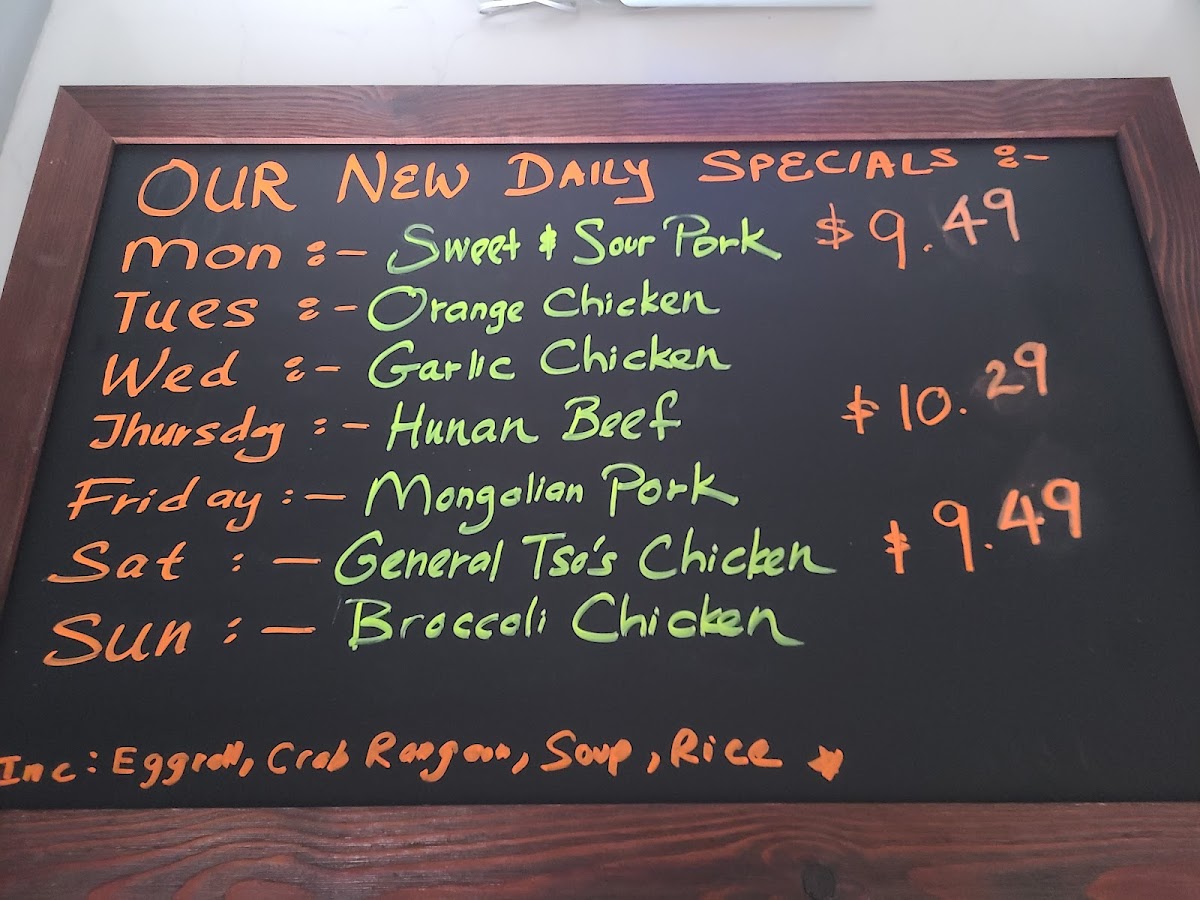 OUR NEW DAILY SPECIALS :-
Mon :- Sweet & Sour Pork $9.49
Tues :- Orange Chicken
Wed :- Garlic Chicken
Thursday :- Hunan Beef $10.29
Friday :- Mongolian Pork
Sat :- General Tso's Chicken $9.49
Sun :- Broccoli Chicken
Inc: Eggroll, Crab Rangoon, Soup, Rice